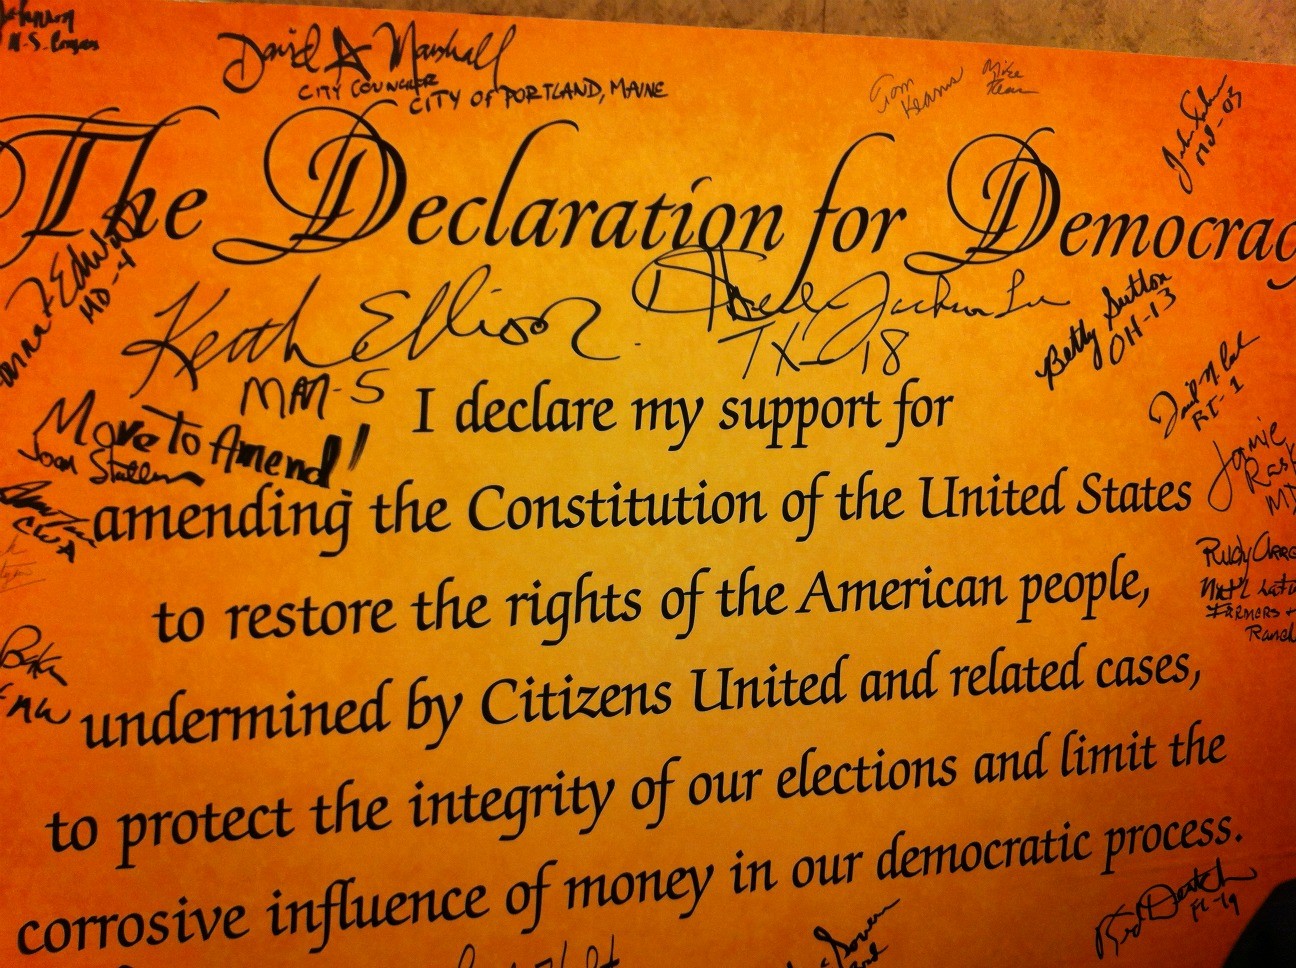 Johnson
David A Marshall
CITY COUNCILOR
CITY OF PORTLAND, MAINE
Tom
Kearns
Mike
The Declaration for Democrac
MD-03
Donna F Edwards
MD-4
Keith Ellison
MN-5
Sheila Jackson Lee
TX-18
Betty Sutton
OH-13
RI-1
Move To Amend!
I declare my support for
amending the Constitution of the United States
to restore the rights of the American people,
undermined by Citizens United and related cases,
to protect the integrity of our elections and limit the
corrosive influence of money in our democratic process.
CWA
Jamie
Rask
MD
Rudy Arre
Nat'l Lati
Farmers +
Ranch
Ted Deutch
FL-19